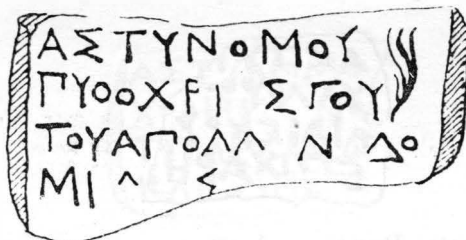 ΑΣΤΥΝΟΜΟΥ
ΠΥΟΟΧΡΙ ΣΓΟΥ
ΤΟΥΑΠΟΛΛ Ν ΔΟ
ΜΙΛ Σ